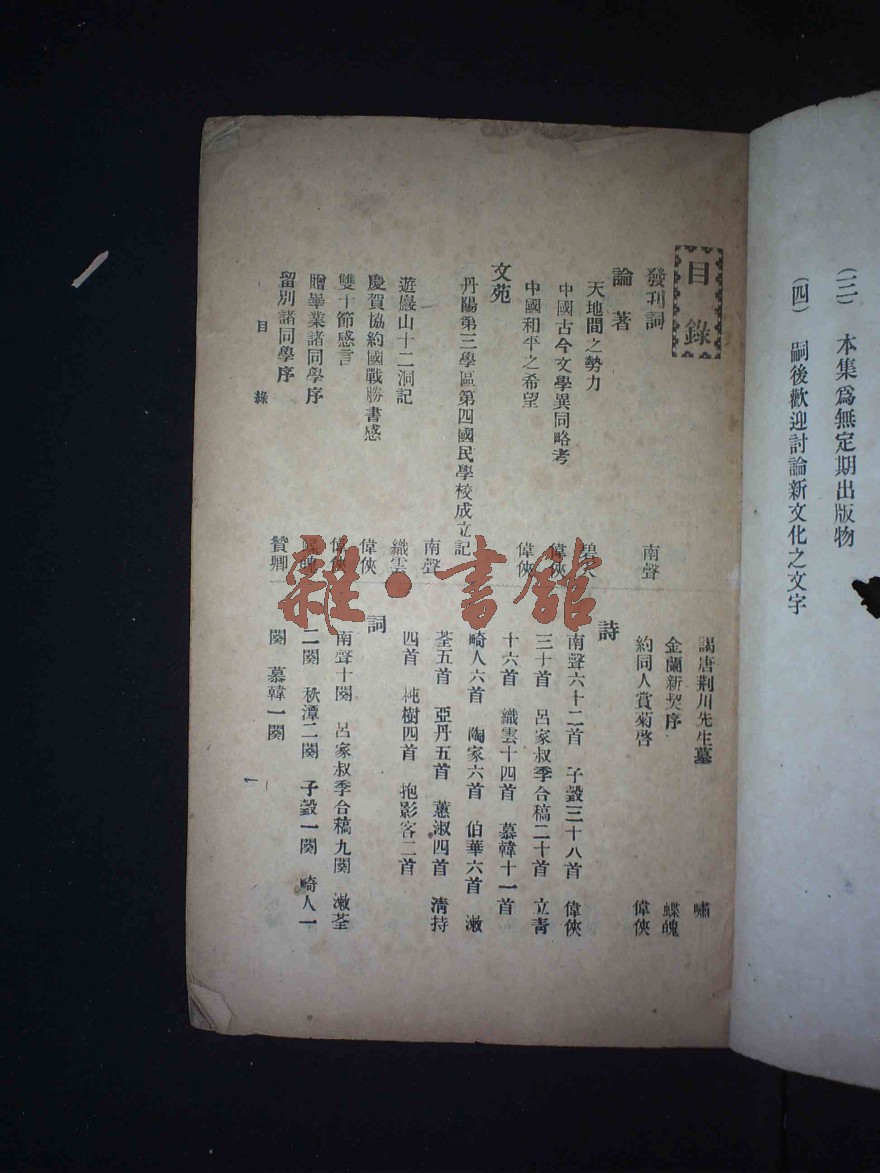 (三)　本集爲無定期出版物
(四)　嗣後歡迎討論新文化之文字
目錄
發刊詞　南聲
論著
天地間之勢力　碧
中國古今文學異同略考　偉俠
中國和平之希望　偉俠
文苑
丹陽第三學區第四國民學校成立記　南聲
遊巖山十二洞記　織雲
慶賀協約國戰勝書感　偉俠
雙十節感言　偉俠
贈畢業諸同學序　蝶魄
留別諸同學序　贊卿
謁唐荆川先生墓　嘯
金蘭新契序　蝶魄
約同人賞菊啓　偉俠
詩
南聲六十二首　子轂三十八首　偉俠
三十首　呂家叔季合稿二十首　立青
十六首　織雲十四首　慕韓十一首
畸人六首　陶家六首　伯華六首　漱
荃五首　亞丹五首　蕙淑四首　清持
四首　樹四首　抱影客二首
詞
南聲十闋　呂家叔季合稿九闋　漱荃
二闋　秋潭二闋　子轂一闋　畸人一
闋　慕韓一闋
目錄
一
雜·書館